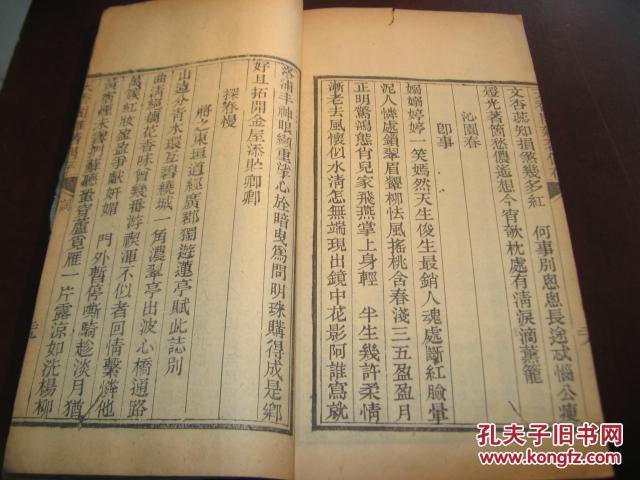 文杏蕊知損煞幾多紅　何事別悤悤長途忒惱公
燈光著簡愁儂遙想今宵欹枕處有清淚滴薰籠
沁園春
卽事
嫋嫋婷婷一笑嫣然天生俊生最銷人魂處斷紅臉暈
泥人憐處鎖翠眉顰柳怯風搖桃含春淺三五盈盈月
正明驚鴻態肯兒家飛燕掌上身輕　半生幾許柔情
漸老去風懷似水清怎無端現出鏡中花影阿誰寫就
洛浦丰神眼纈重挲心旌暗曳爲問明珠購得成是鄉
好且拓開金屋添貯卿卿
探春慢
將之東垣道經廣郡獨遊蓮亭賦此誌別
山遠分青水環互碧繞城一角濃翠亭出波心橋通路
曲清絕藕花香味曾幾番游禊渾不似者回情繫憐他
萬談紅妝盈盈爭獻妍媚　門外暫停嘶騎趁淡月猶
一片露涼如洗楊柳
孔夫子旧书网
www.kongfz.com
孔夫子旧书网
www.kongfz.com